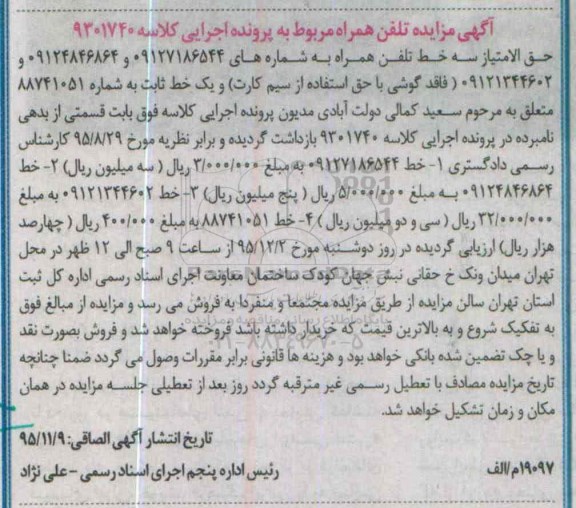 آگهی مزایده تلفن همراه مربوط به پرونده اجرایی کلاسه ۹۳۰۱۷۴۰
حق الامتیاز سه خط تلفن همراه به شماره های ۰۹۱۲۷۱۸۶۵۴۴ و ۰۹۱۲۴۸۴۶۸۶۴ و
۰۹۱۲۱۳۴۴۶۰۲ ( فاقد گوشی با حق استفاده از سیم کارت) و یک خط ثابت به شماره ۸۸۷۴۱۰۵۱
متعلق به مرحوم سعید کمالی دولت آبادی مدیون پرونده اجرایی کلاسه فوق بابت قسمتی از بدهی
نامبرده در پرونده اجرایی کلاسه ۹۳۰۱۷۴۰ بازداشت گردیده و برابر نظریه مورخ ۹۵/۸/۲۹ کارشناس
رسمی دادگستری ۱- خط ۰۹۱۲۷۱۸۶۵۴۴ به مبلغ ۳/۰۰۰/۰۰۰ ریال ( سه میلیون ریال) ۲- خط
۰۹۱۲۴۸۴۶۸۶۴ به مبلغ ۵/۰۰۰/۰۰۰ ریال ( پنج میلیون ریال) ۳- خط ۰۹۱۲۱۳۴۴۶۰۲ به مبلغ
۳۲/۰۰۰/۰۰۰ ریال ( سی و دو میلیون ریال ) ۴- خط ۸۸۷۴۱۰۵۱ به مبلغ ۴۰۰/۰۰۰ ریال ( چهارصد
هزار ریال) ارزیابی گردیده در روز دوشنبه مورخ ۹۵/۱۲/۲ از ساعت ۹ صبح الی ۱۲ ظهر در محل
تهران میدان ونک خ حقانی نبش جهان کودک ساختمان معاونت اجرای اسناد رسمی اداره کل ثبت
استان تهران سالن مزایده از طریق مزایده مجتمعا و منفردا به فروش می رسد و مزایده از مبالغ فوق
به تفکیک شروع و به بالاترین قیمت که خریدار داشته باشد فروخته خواهد شد و فروش بصورت نقد
و یا چک تضمین شده بانکی خواهد بود و هزینه ها قانونی برابر مقررات وصول می گردد ضمنا چنانچه
تاریخ مزایده مصادف با تعطیل رسمی غیر مترقبه گردد روز بعد از تعطیلی جلسه مزایده در همان
مکان و زمان تشکیل خواهد شد.
تاریخ انتشار آگهی الصاقی: ۹۵/۱۱/۹
۱۹۰۹۷/م/الف رئیس اداره پنجم اجرای اسناد رسمی - علی نژاد